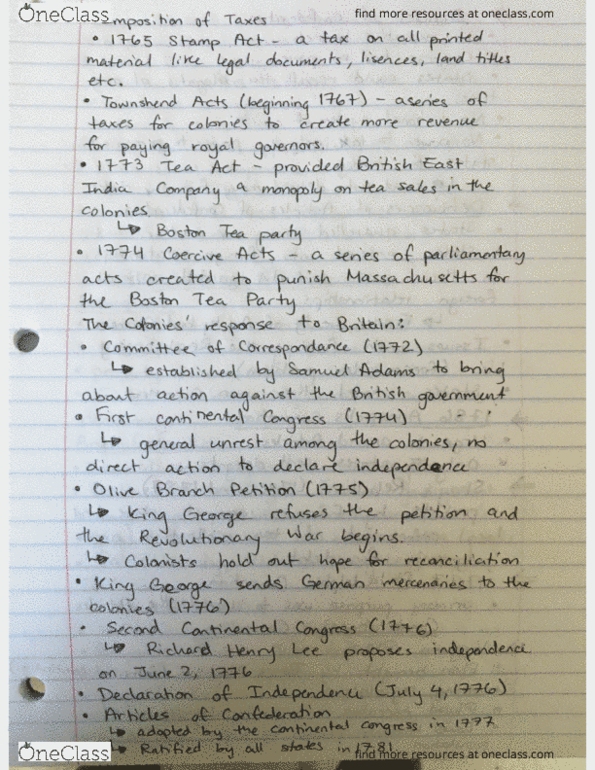 OneClass
find more resources at oneclass.com
mposition of Taxes
• 1765 Stamp Act - a tax on all printed
material like legal documents, lisences, land titles
etc.
• Townshend Acts (beginning 1767) - a series of
taxes for colonies to create more revenue
for paying royal governors.
• 1773 Tea Act - provided British East
India Company a monopoly on tea sales in the
colonies
↳ Boston Tea party
• 1774 Coercive Acts - a series of parliamentary
acts created to punish Massachusetts for
the Boston Tea Party
The Colonies' response to Britain:
• Committee of Correspondance (1772)
↳ established by Samuel Adams to bring
about action against the British government
• First continental Congress (1774)
↳ general unrest among the colonies, no
direct action to declare independence
• Olive Branch Petition (1775)
↳ King George refuses the petition and
the Revolutionary War begins.
↳ Colonists hold out hope for reconciliation
• King George sends German mercenaries to the
colonies (1776)
• Second Continental Congress (1776)
↳ Richard Henry Lee proposes independence
on June 2, 1776
• Declaration of Independence (July 4, 1776)
• Articles of Confederation
↳ adopted by the continental congress in 1777
↳ Ratified by all states in 1781
OneClass
find more resources at oneclass.com